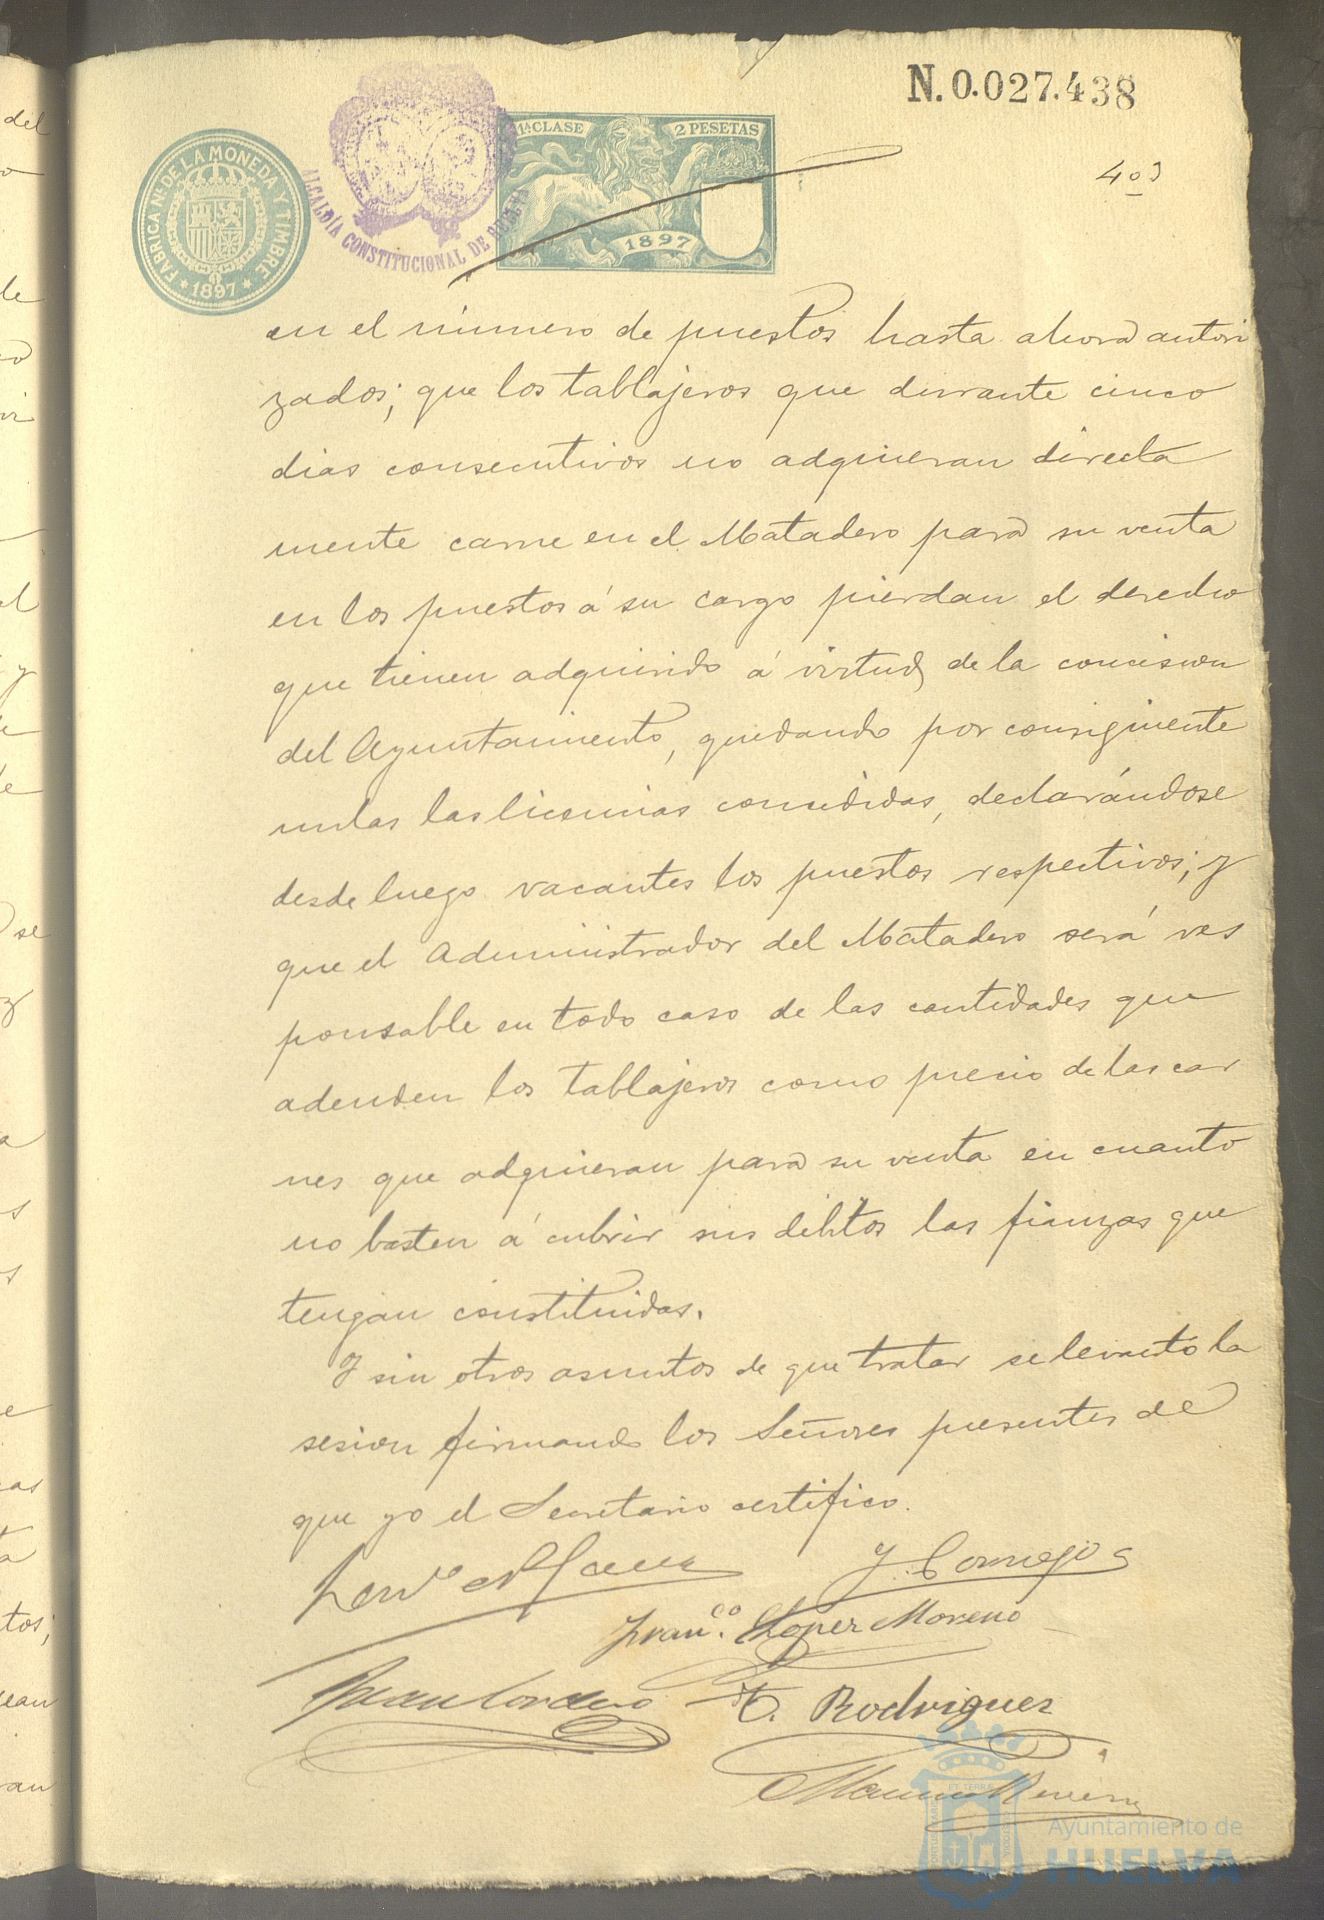 N.0.027.438
FABRICA NL. DE LA MONEDA Y TIMBRE
1897
ALCALDÍA CONSTITUCIONAL DE HUELVA
1ª CLASE
2 PESETAS
1897
en el número de puestos hasta ahora autori
zados; que los tablajeros que durante cinco
dias consecutivos no adquieran directa
mente carne en el Matadero para su venta
en los puestos á su cargo pierdan el derecho
que tienen adquirido á virtud de la concision
del Ayuntamiento, quedando por consiguiente
nulas las licencias concedidas, declarándose
desde luego vacantes los puestos respectivos; y
que el Administrador del Matadero será res
ponsable en todo caso de las cantidades que
adeuden los tablajeros como precio de las car
nes que adquieran para su venta en cuanto
no basten á cubrir sus débitos las fianzas que
tengan constituidas.
Y sin otros asuntos de que tratar se levantó la
sesion firmando los Señores presentes de
que yo el Secretario certifico.
J. Cornejo
Franco. Lopez Moreno
Juan Cordero
T. Rodriguez
ET TERRÆ
Ayuntamiento de
HUELVA
del
de
se
y
tos;